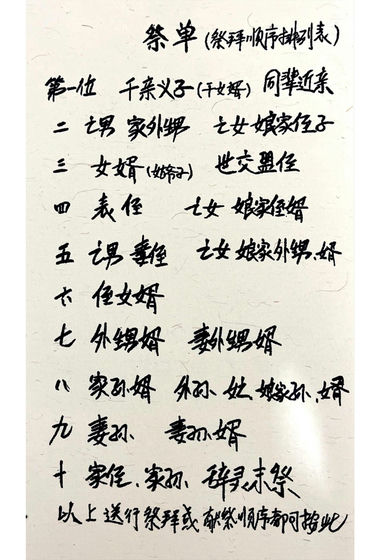 祭单(祭拜顺序排列表)
第一位 干亲义子(干女婿) 同辈近亲
二 亡男 家外甥 亡女娘家侄子
三 女婿 世交盟侄
四 表侄 亡女 娘家侄婿
五 亡男 妻侄 亡女娘家外甥、婿
六 侄女婿
七 外甥婿 妻外甥婿
八 家孙婿 外孙、亡女、娘家孙、婿
九 妻孙 妻孙、婿
十 家侄、家孙、辞灵末祭
以上送行祭拜或献祭顺序都可按此